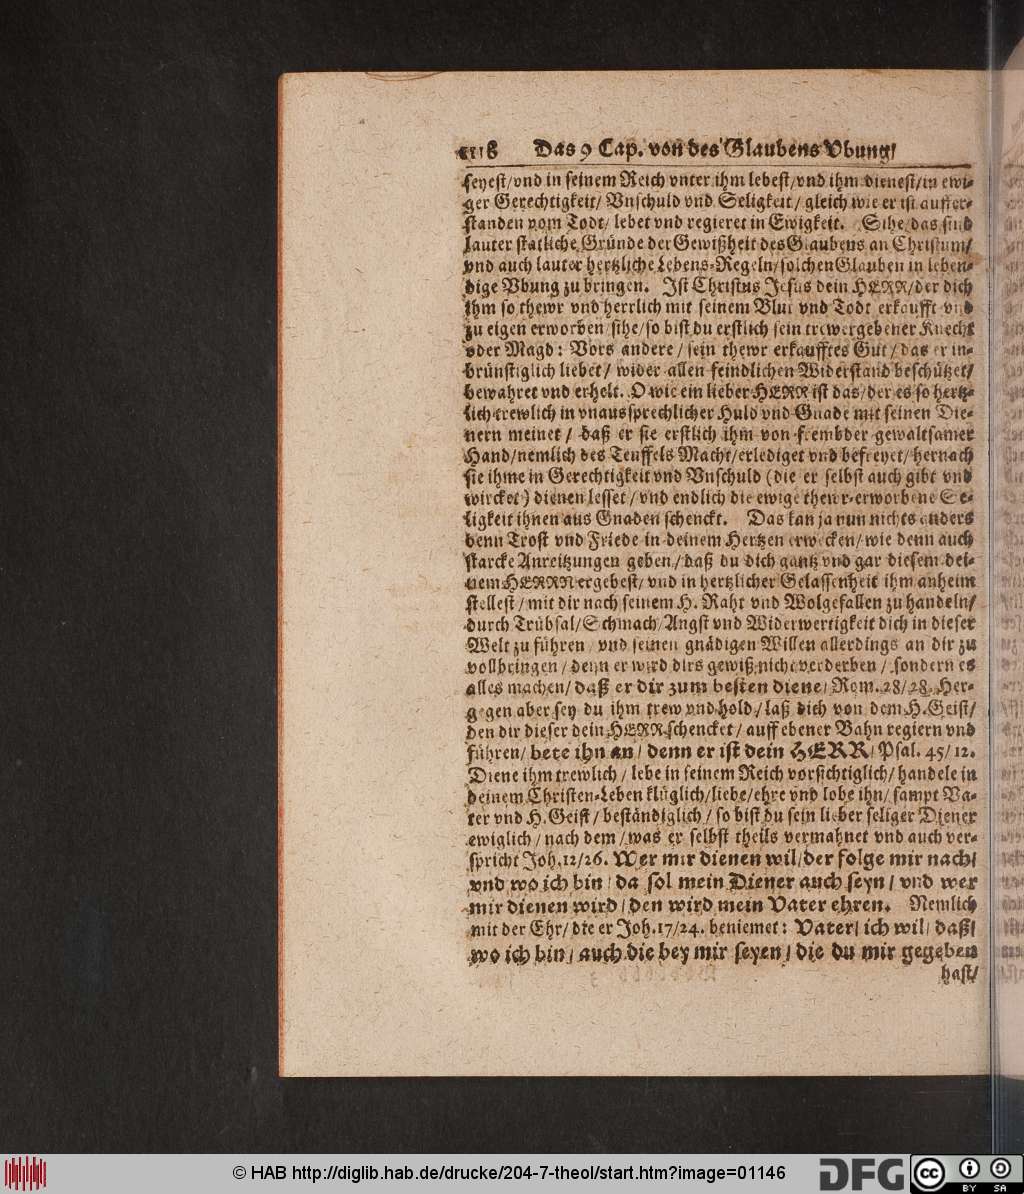 1118 Das 9 Cap. von des Glaubens Vbung/
seyest/vnd in seinem Reich vnter ihm lebest/vnd ihm dienest/in ewi-
ger Gerechtigkeit/ Vnschuld vnd Seligkeit/ gleich wie er ist auffer-
standen vom Todt/ lebet vnd regieret in Ewigkeit. Sihe/das sind
lauter statliche Gründe der Gewißheit des Glaubens an Christum/
vnd auch lauter hertzliche Lebens-Regeln/solchen Glauben in leben-
dige Vbung zu bringen. Ist Christus Jesus dein HERR/der dich
ihm so thewr vnd herrlich mit seinem Blut vnd Todt erkaufft vnd
zu eigen erworben/sihe/so bist du erstlich sein trewergebener Knecht
oder Magd: Vors andere/ sein thewr erkaufftes Gut/ das er in-
brünstiglich liebet/ wider allen feindlichen Widerstand beschützet/
bewahret vnd erhelt. O wie ein lieber HERR ist das/der es so hertz-
lich trewlich in vnaussprechlicher Huld vnd Gnade mit seinen Die-
nern meinet/ daß er sie erstlich ihm von frembder gewaltsamer
Hand/nemlich des Teuffels Macht/erlediget vnd befreyet/hernach
sie ihme in Gerechtigkeit vnd Vnschuld (die er selbst auch gibt vnd
wircket) dienen lesset/ vnd endlich die ewige thewr-erworbene Se-
ligkeit ihnen aus Gnaden schenckt. Das kan ja nun nichts anders
denn Trost vnd Friede in deinem Hertzen erwecken/ wie denn auch
starcke Anreitzungen geben/ daß du dich gantz vnd gar diesem dei-
nem HERRN ergebest/ vnd in hertzlicher Gelassenheit ihm anheim
stellest/ mit dir nach seinem H. Raht vnd Wolgefallen zu handeln/
durch Trübsal/Schmach/Angst vnd Widerwertigkeit dich in dieser
Welt zu führen/ vnd seinen gnädigen Willen allerdings an dir zu
vollbringen/ denn er wird dirs gewiß nicht verderben/ sondern es
alles machen/ daß er dir zum besten diene/ Rom. 28/28. Her-
gegen aber sey du ihm trew vnd hold/ laß dich von dem H. Geist/
den dir dieser dein HERR schencket/ auff ebener Bahn regiern vnd
führen/ bete ihn an/ denn er ist dein HERR/ Psal. 45/12.
Diene ihm trewlich/ lebe in seinem Reich vorsichtiglich/ handele in
deinem Christen-Leben klüglich/liebe/ehre vnd lobe ihn/ sampt Va-
ter vnd H. Geist/ beständiglich/ so bist du sein lieber seliger Diener
ewiglich/ nach dem/ was er selbst theils vermahnet vnd auch ver-
spricht Joh. 12/26. Wer mir dienen wil/der folge mir nach/
vnd wo ich bin/ da sol mein Diener auch seyn/ vnd wer
mir dienen wird/ den wird mein Vater ehren. Nemlich
mit der Ehr/ die er Joh. 17/24. beniemet: Vater/ ich wil/ daß/
wo ich bin/ auch die bey mir seyen/ die du mir gegeben
hast/
© HAB http://diglib.hab.de/drucke/204-7-theol/start.htm?image=01146
DFG
cc BY SA